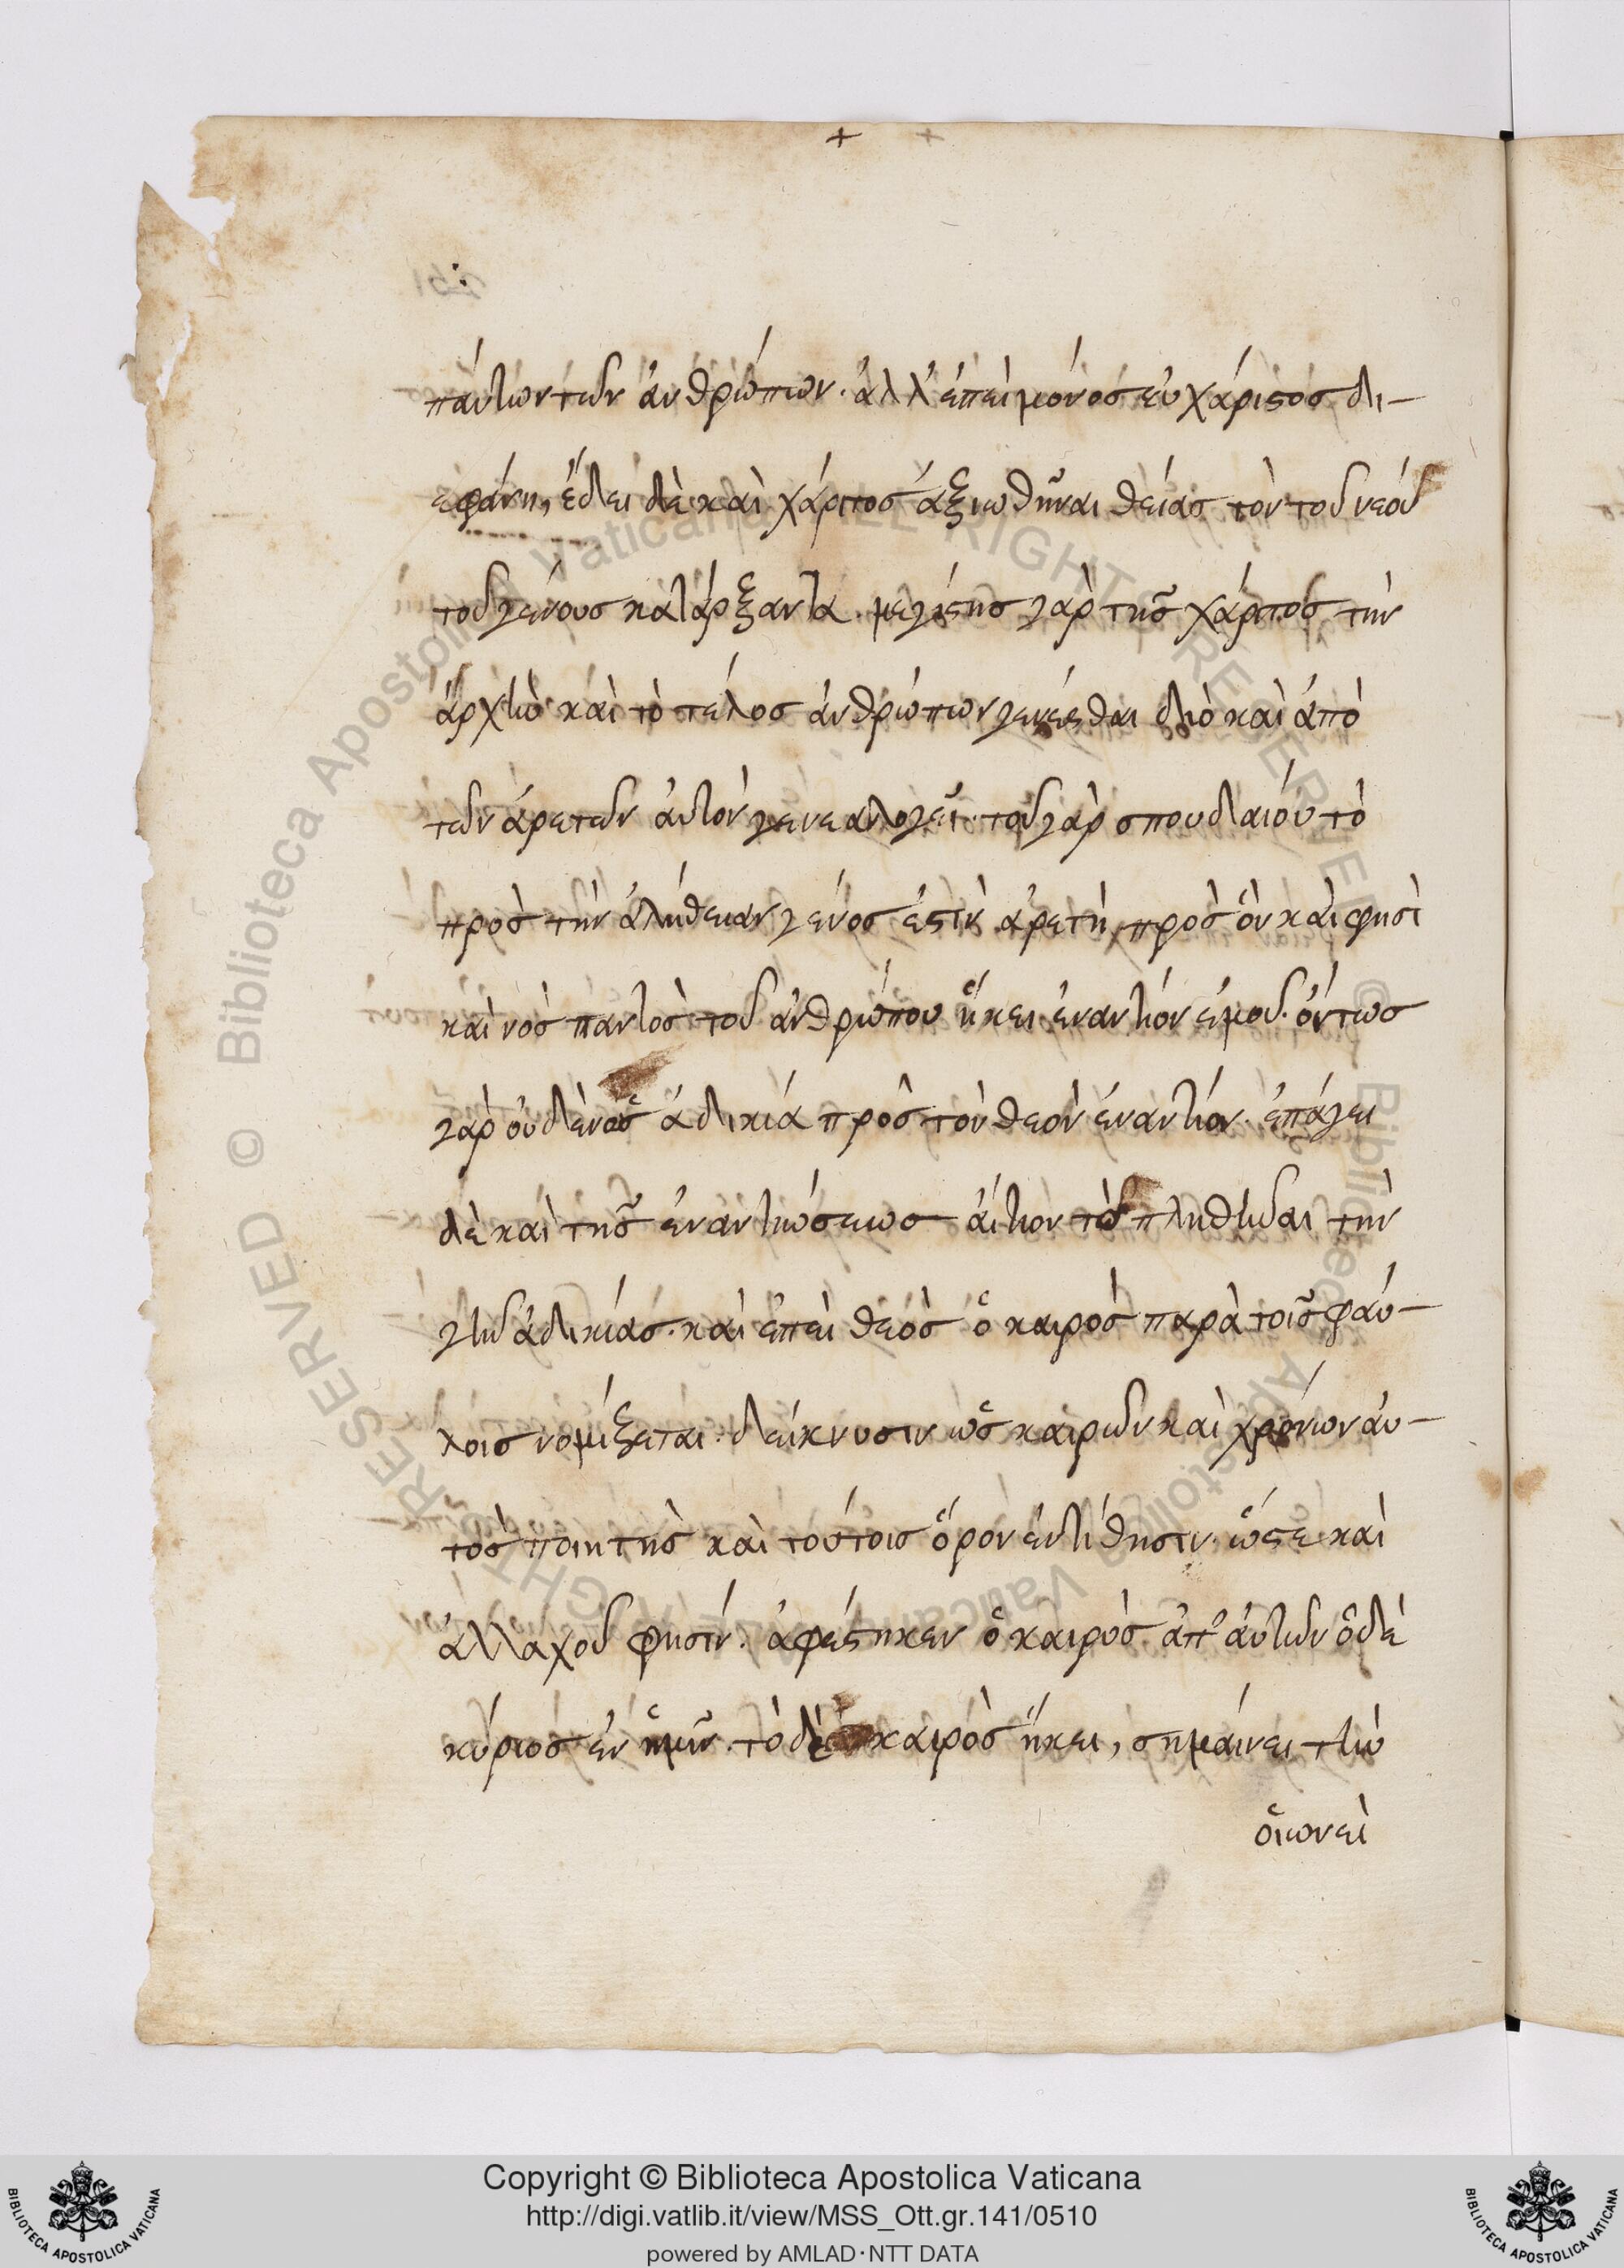 πάντων τῶν ἀνθρώπων. ἀλλ' ἐπεὶ μόνος εὐχάριστος δι-
εφάνη, ἔδει δὲ καὶ χάριτος ἀξιωθῆναι θείας τὸν τοῦ νεοῦ
τοῦ γένους κατάρξαντα. μεγίστης γὰρ τῆς χάριτος τὴν
ἀρχὴν καὶ τὸ τέλος ἀνθρώπων γενέσθαι διὸ καὶ ἀπὸ
τῶν ἀρετῶν αὐτὸν γενεαλογεῖ. τοῦ γὰρ σπουδαίου τὸ
πρὸς τὴν ἀλήθειαν γένος ἐστὶν ἀρετή, πρὸς ὃν καὶ φησὶ
καινὸς παντὸς τοῦ ἀνθρώπου ἥκει ἐναντίον ἐμοῦ. ὄντως
γὰρ οὐδενὸς ἀδικία πρὸς τὸν θεὸν ἐναντίον. ἐπάγει
δὲ καὶ τῆς ἐναντιώσεως αἴτιον τὸ πληθῦναι τὴν
γῆν ἀδικίας. καὶ ἐπεὶ θεὸς ὁ καιρὸς παρὰ τοῖς φαύ-
λοις νομίζεται. δείκνυσιν ὡς καιρῶν καὶ χρόνων αὐ-
τὸς ποιητὴς καὶ τούτοις ὅρον ἐντίθησιν. ὥστε καὶ
ἀλλαχοῦ φησίν. ἀφέστηκεν ὁ καιρὸς ἀπ' αὐτῶν ὁ δὲ
κύριος ἐν ἡμῖν. τὸ δὲ καιρὸς ἥκει, σημαίνει τὴν
οἱωνεὶ
Copyright © Biblioteca Apostolica Vaticana
http://digi.vatlib.it/view/MSS_Ott.gr.141/0510
powered by AMLAD·NTT DATA